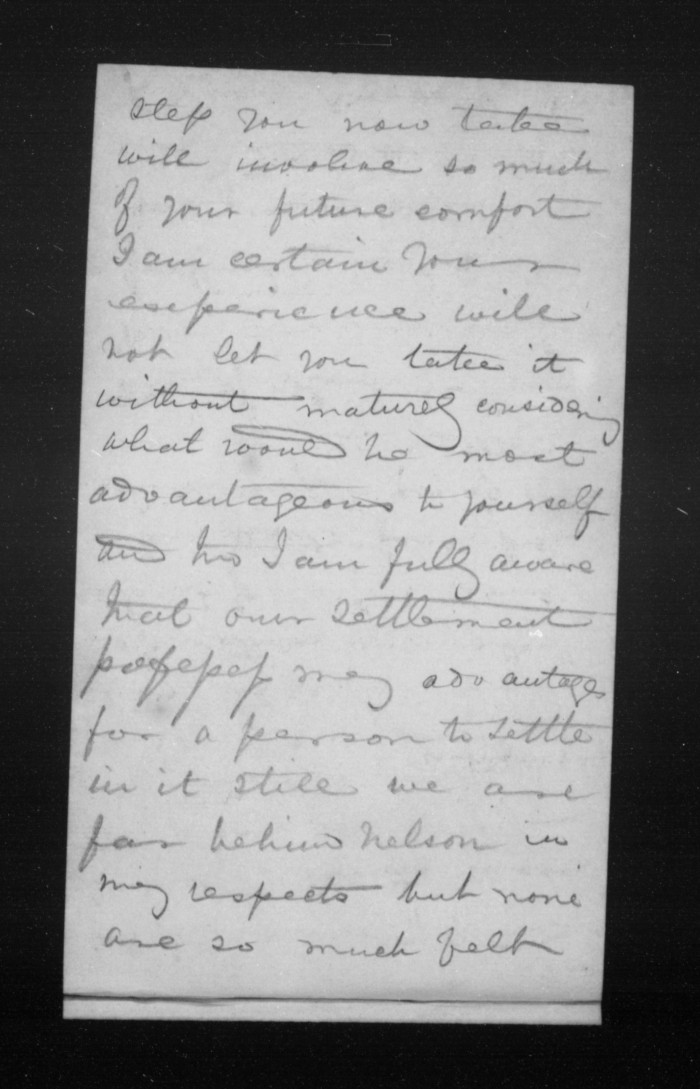 step you now take
will involve so much
of your future comfort
I am certain your
experience will
not let you take it
without maturely considering
what would be most
advantageous to yourself
and tho I am fully aware
that our settlement
possesses many advantages
for a person to settle
in it still we are
far behind Nelson in
many respects but none
are so much felt